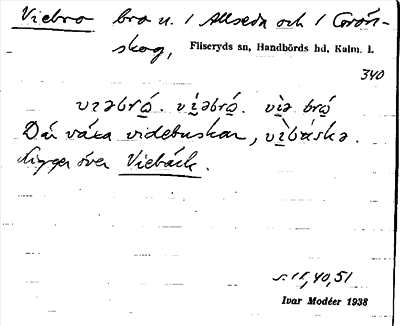 Viebro bro n. 1 Allseda och 1 Grön-
skog, Fliseryds sn, Handbörds hd, Kalm. l.
340
vɩəbrọ́. vɩ̣́əbrọ́. vɩ̣̀ə brọ́
Där växa videbuskar, vɩ̣̀båskə.
Ligger över Viebäck.
s. 15, 40, 51
Ivar Modéer 1938